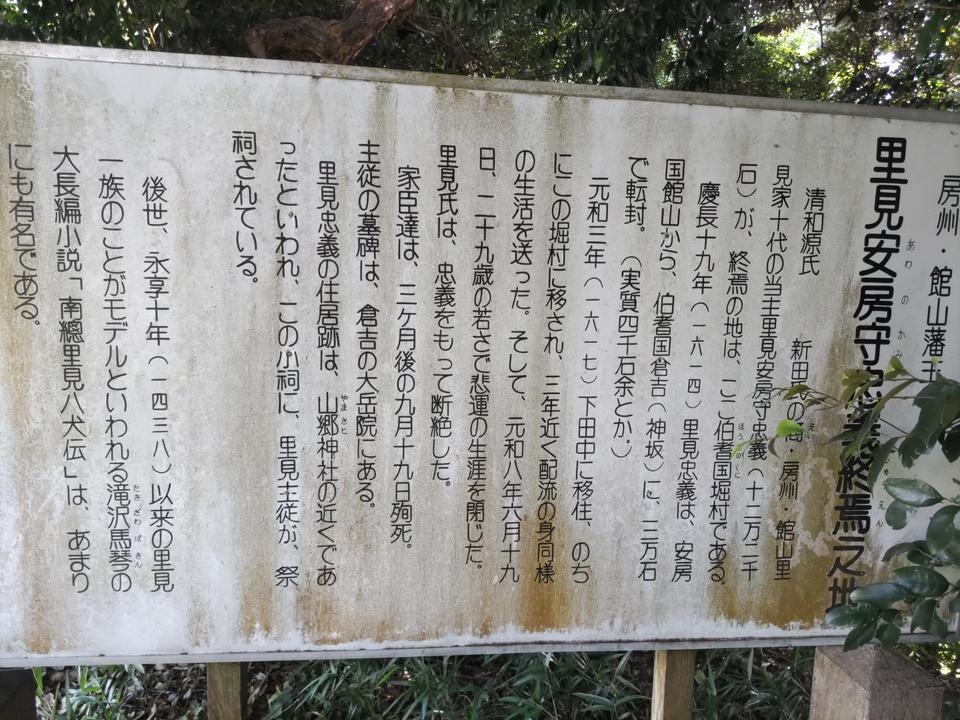 房州・館山藩主
里見安房守忠義終焉之地
あわのかみ
えん
清和源氏 新田氏の裔・房州・館山里
えい
見家十代の当主里見安房守忠義(十二万二千
石)が、終焉の地は、ここ伯耆国堀村である。
ほうきのくに
慶長十九年(一六一四)里見忠義は、安房
国館山から、伯耆国倉吉(神坂)に、三万石
で転封。(実質四千石余とか)
元和三年(一六一七)下田中に移住、のち
にこの堀村に移され、三年近く配流の身同様
の生活を送った。そして、元和八年六月十九
日、二十九歳の若さで悲運の生涯を閉じた。
里見氏は、忠義をもって断絶した。
家臣達は、三ヶ月後の九月十九日殉死。
主従の墓碑は、倉吉の大岳院にある。
里見忠義の住居跡は、山郷神社の近くであ
やまさと
ったといわれ、この小祠に、里見主従が、祭
祠されている。
後世、永享十年(一四三八)以来の里見
一族のことがモデルといわれる滝沢馬琴の
たきざわばきん
大長編小説「南總里見八犬伝」は、あまり
にも有名である。